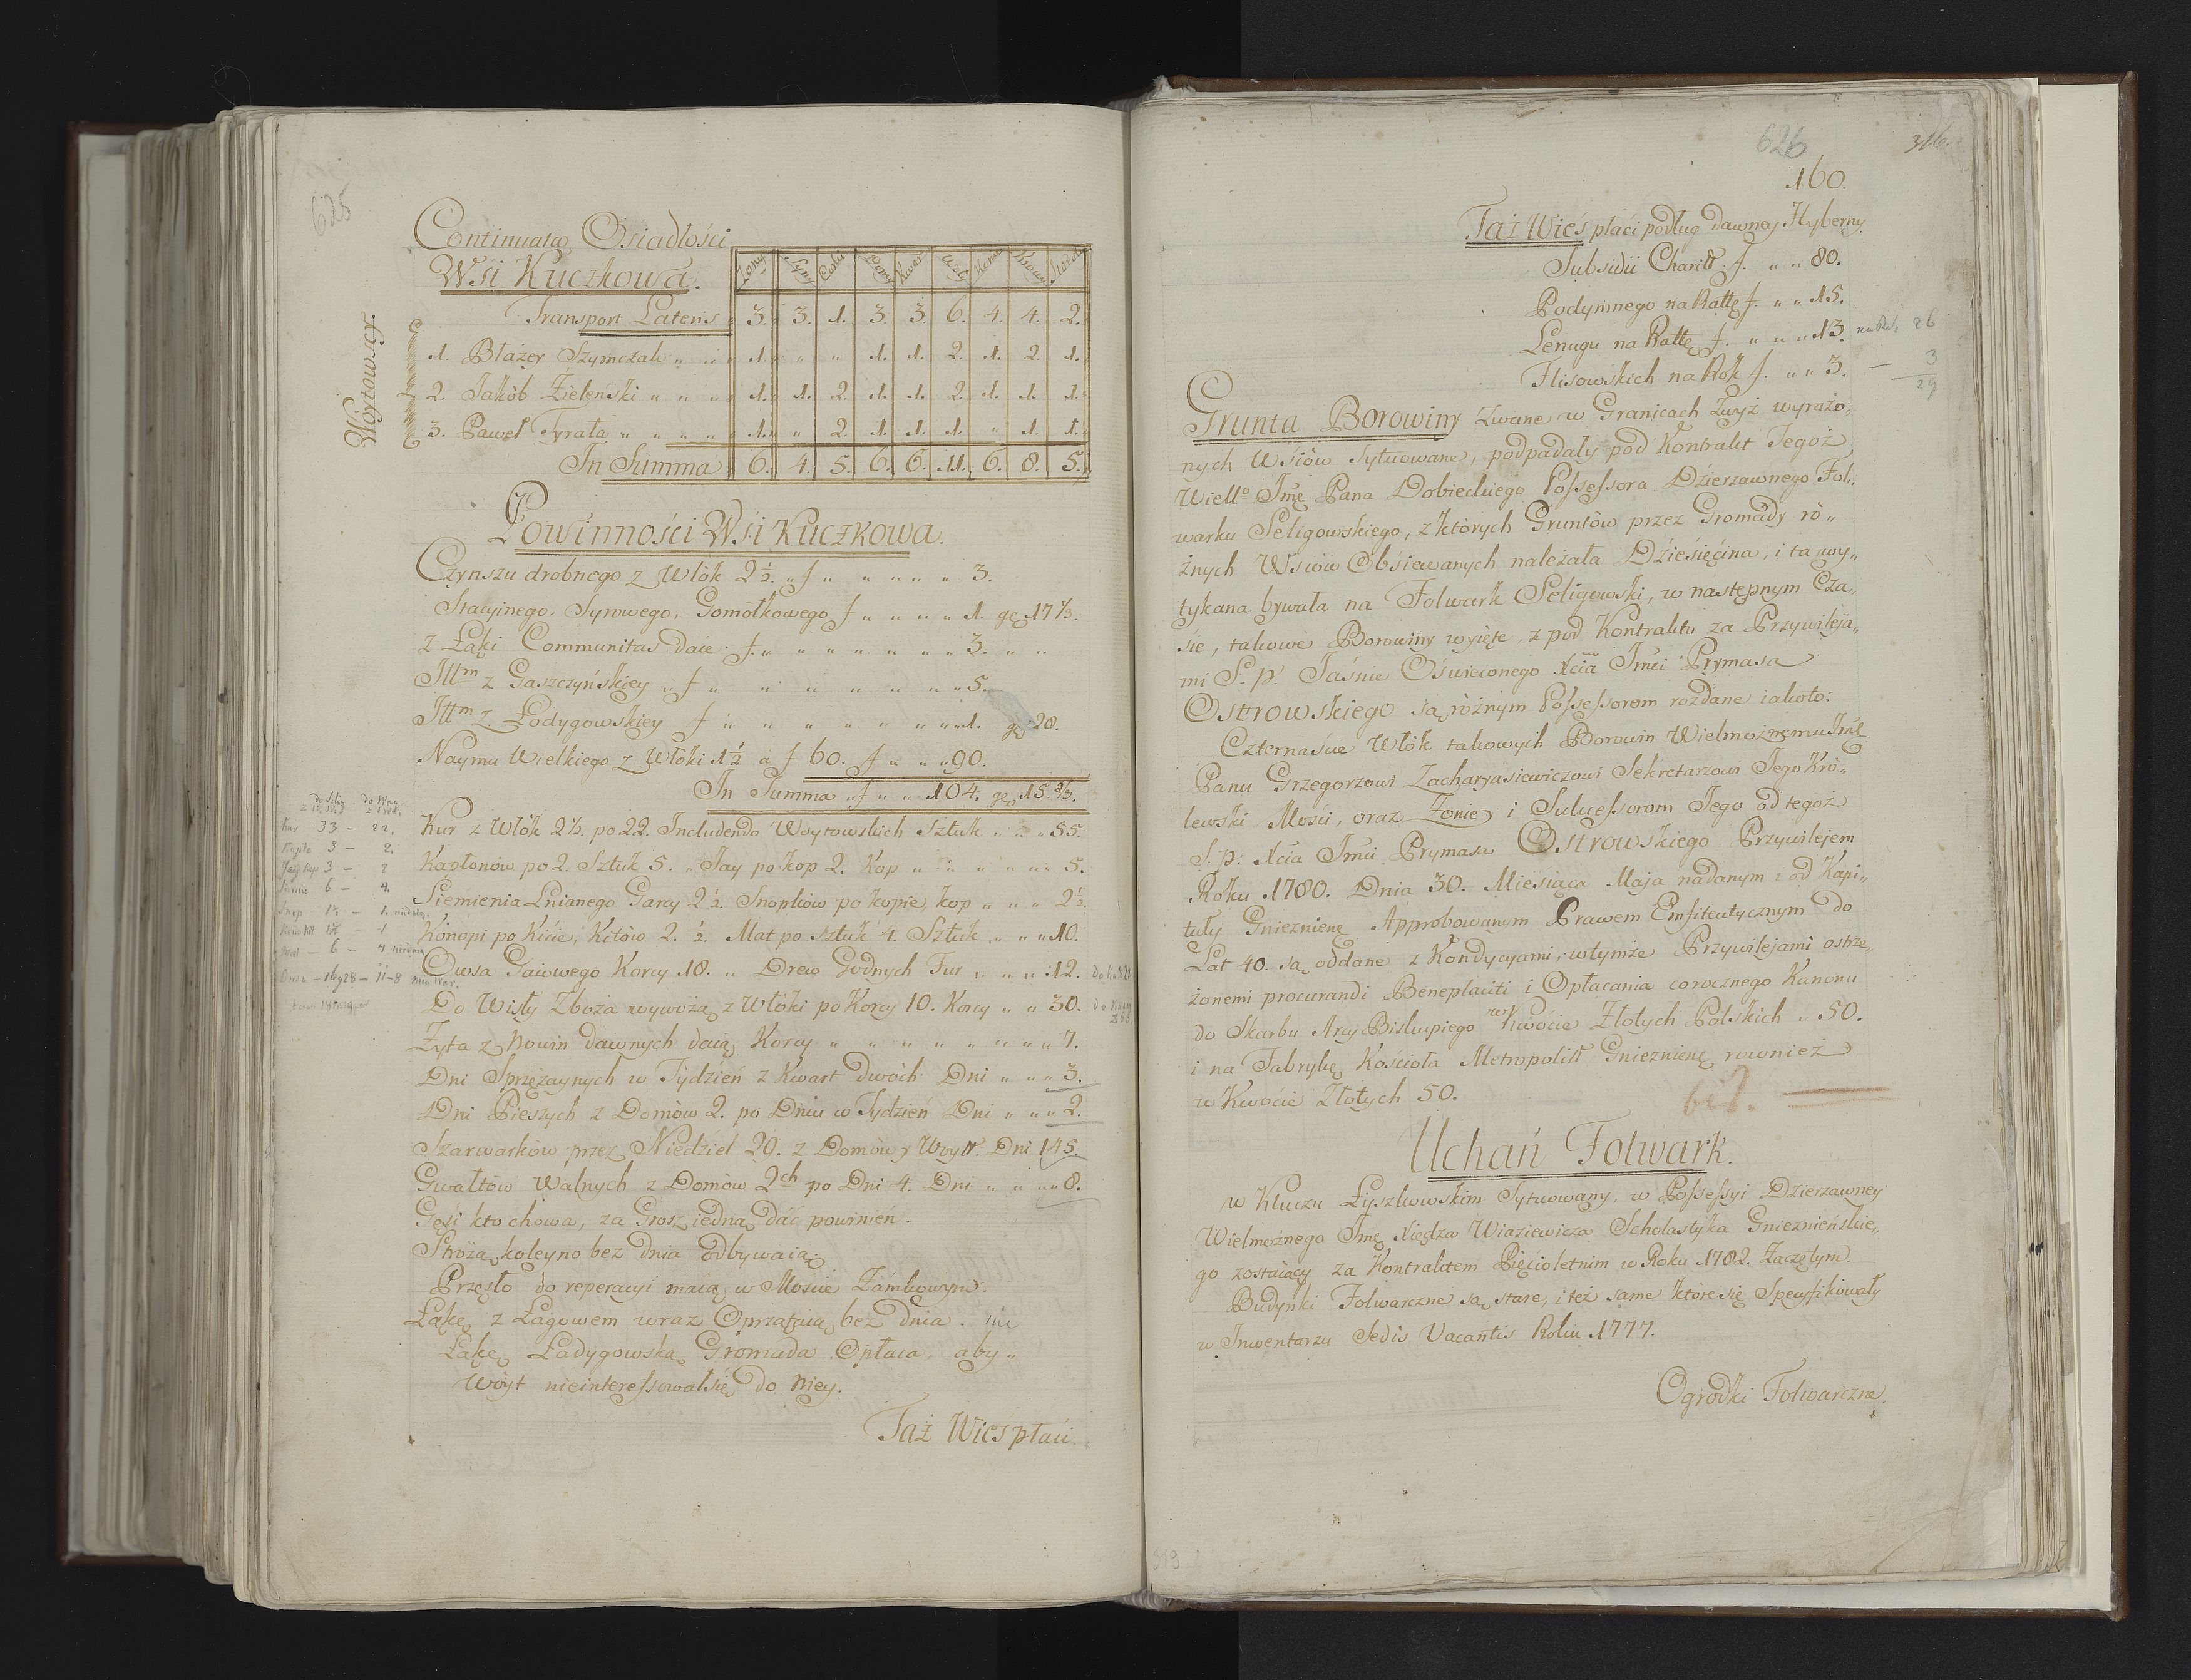 625
Continuatio Osiadłości
Wsi Kuczkowa.
Żony Syny Corki Domy Kwar: Woły Konie Krowy
Transport Lateris 3. 3. 1. 3. 3. 6. 4. 4. 2.
Woytowscy.
1. Błażey Szymczak " " 1. " " 1. 1. 2. 1. 2. 1.
2. Jakób Zielenski " " " 1. 1. 2. 1. 1. 2. 1. 1. 1.
3. Paweł Tyrała " " " " 1. " 2. 1. 1. 1. " 1. 1.
In Summa 6. 4. 5. 6. 6. 11. 6. 8. 5.
Powinności Wsi Kuczkowa.
Czynszu drobnego z Włók 2½. " f " " " " " 3.
Stacyinego, Syrowego, Gomołkowego f " " " " 1. gę 17⅓.
z Łąki Communitas daie f. " " " " " " " 3. " "
Ittm z Gaszczyńskiey " f " " " " " " " 5.
Ittm z Łodygowskiey f " " " " " " " " 1. gę 28.
Naymu Wielkiego z Włoki 1½ a f 60. f " " " 90.
In Summa " f " " 104. gę 15.⅔.
Kur z Włók 2½. po 22. Includendo Woytowskich Sztuk " " " 55.
Kapłonów po 2. Sztuk 5. " Jay po kop 2. Kop " " " " " " 5.
Siemienia Lnianego Garcy 2½. Snopków po kopie, kop " " " 2½
Konopi po Kicie, Kitów 2.½. Mat po sztuk 4. Sztuk " " " 10.
Owsa Gaiowego Korcy 18. " Drew Godnych Fur " " " 12.
Do Wisły Zboża wywożą z Włóki po Korcy 10. Korcy " " 30.
Żyta z Nowin dawnych daią Korcy " " " " " " " " 7.
Dni Sprzężaynych w Tydzień z Kwart dwóch Dni " " " 3.
Dni Pieszych z Domów 2. po Dniu w Tydzień Dni " " " 2.
Szarwarków przez Niedziel 20. z Domów, Woytt. Dni 145.
Gwałtów Walnych z Domów 2ch po Dni 4. Dni " " " " 8.
Gęsi kto chowa, za Grosz iedną dać powinien.
Stróżą koleyno bez dnia odbywaią.
Przęsło do reperacyi maią w Moscie Zamkowym.
Łąkę z Łagowem wraz Oprzątaią bez dnia.
Łąkę Ładygowską Gromada Opłaca, aby "
Woyt nieinteressował się do niey.
Taż Wies płaci.
kur 33 – 22.
3 – 2.
Jay kop 3 – 2
6 – 4.
626
316.
160.
Taż Wieś płaci podług dawney Hyberny.
Subsidii Charitt f. " " 80.
Podymnego na Rattę f. " " 15.
Lenugu na Rattę f. " " " 13. na Rok 26
Flisowskich na Rok f. " " 3. — 3
29
Grunta Borowiny zwane w Granicach zwyż wyrażo„
nych Wsiów sytuowane, podpadały pod Kontrakt Tegoż
Wiello Jmę Pana Dobieckiego Possessora Dzierzawnego Fol„
warku Seligowskiego, z których Gruntów przez Gromady ró„
żnych Wsiów Obsiewanych należała Dziesięcina, i ta wy„
tykana bywała na Folwark Seligowski, w następnym Cza„
sie, takowe Borowiny wyięte z pod Kontraktu za Przywileja„
mi S. p. Jaśnie Oświeconego Xcia Jmci Prymasa
Ostrowskiego są różnym Possessorom rozdane iakoto:
Czternaście Włók takowych Borowin Wielmożnemu Jmę
Panu Grzegorzowi Zacharyasiewiczowi Sekretarzowi Jego Kró„
lewski Mości, oraz Żonie i Sukcessorom Jego od tegoż
S. p. Xcia Jmci Prymasa Ostrowskiego Przywilejem
Roku 1780. Dnia 30. Miesiąca Maja nadanym i od Kapi„
tuły Gnieznienę Approbowanym Prawem Emfiteutycznym do
Lat 40. są oddane z Kondycyami, w tymże Przywilejami ostrze„
żonemi procurandi Beneplaciti i Opłacania corocznego Kanonu
do Skarbu Arcy Biskupiego w Kwocie Złotych Polskich " 50.
i na Fabrykę Kościoła Metropolitt Gnieznienę rownież
w Kwocie Złotych 50.
Uchań Folwark.
w Kluczu Łyszkowskim Sytuowany, w Possessyi Dzierzawney
Wielmożnego Jmę Xiędza Wiaziewicza Scholastyka Gnieznieńskie„
go zostaiący za Kontraktem Pięcioletnim w Roku 1782. Zaczętym.
Budynki Folwarczne są stare, i też same które się Specyfikowały
w Inwentarzu Sedis Vacantis Roku 1777.
Ogrodki Folwarczne.
319